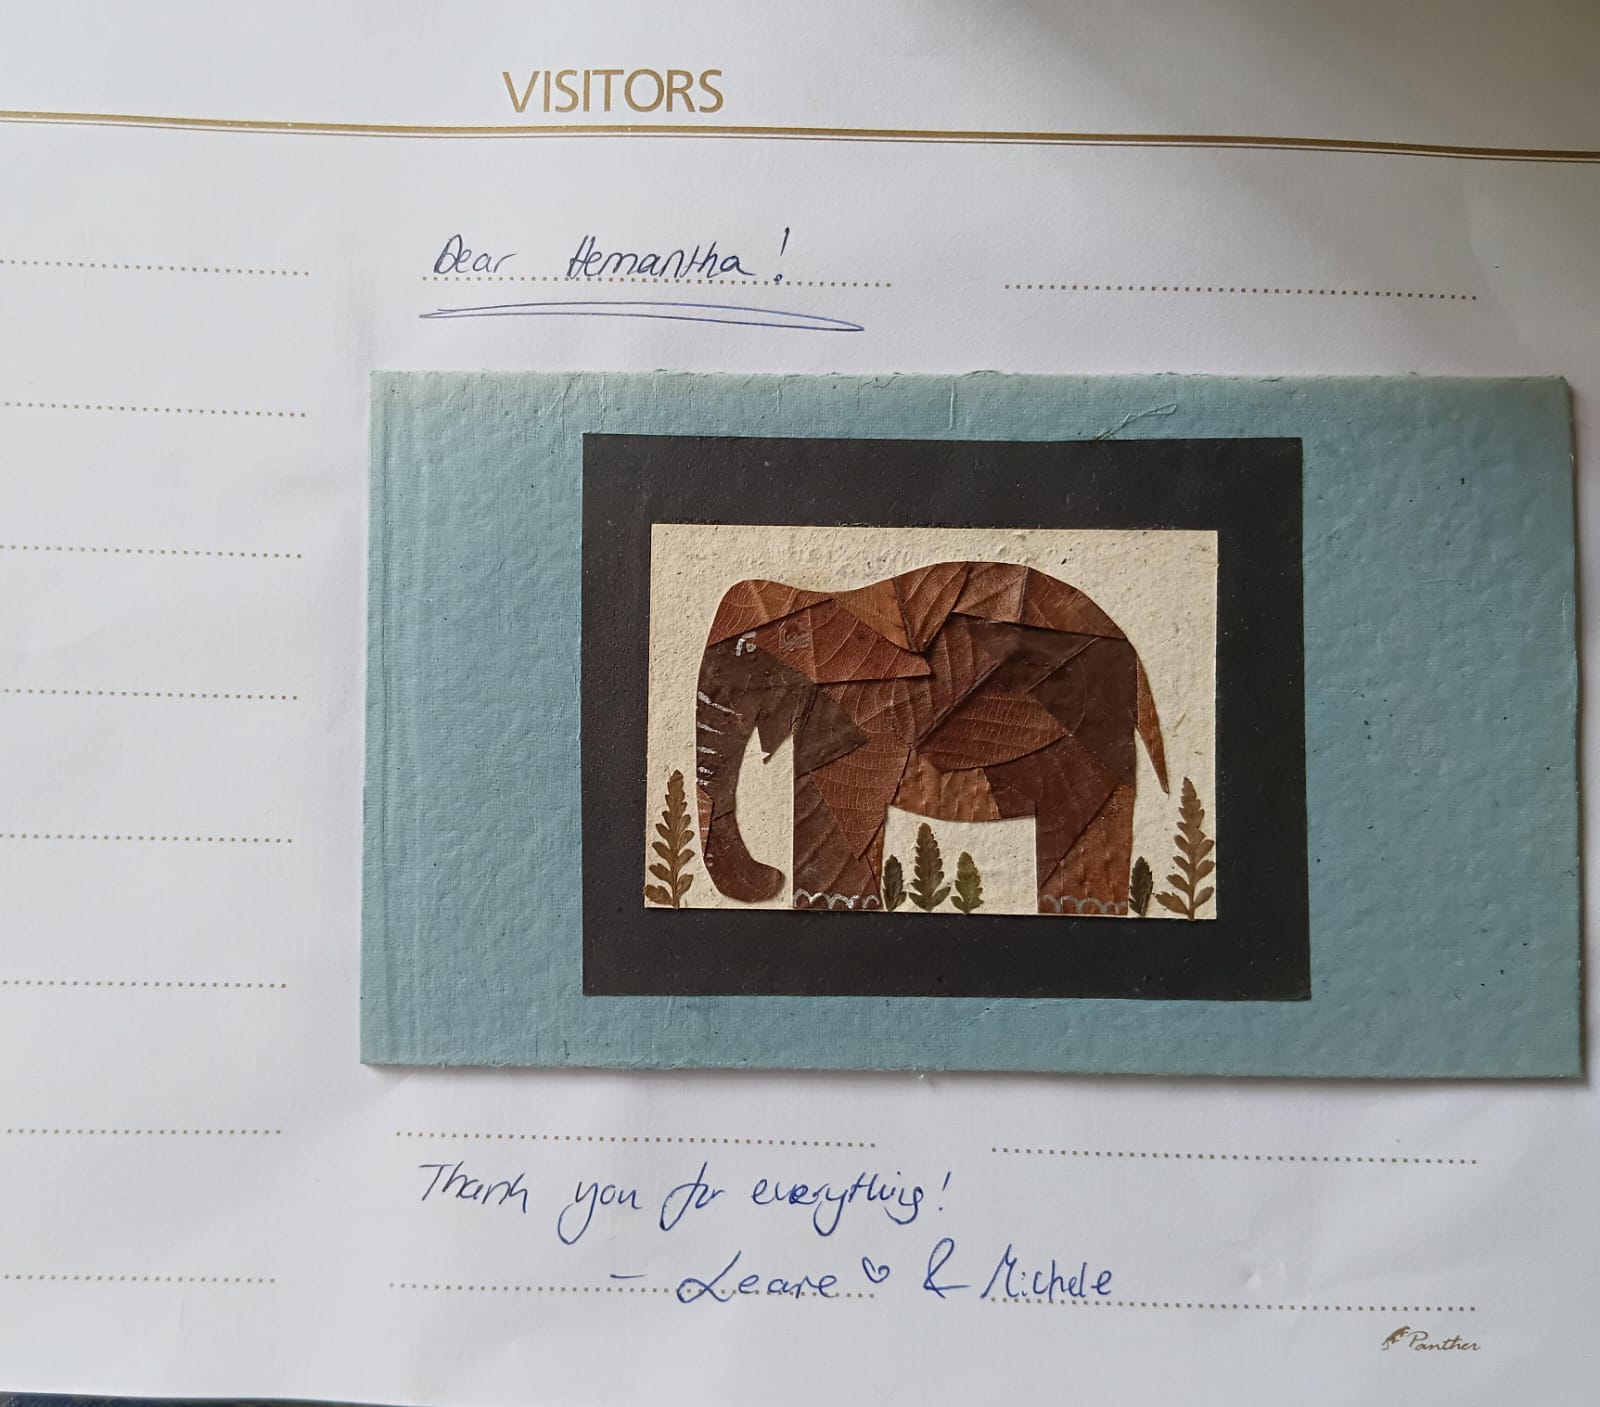 VISITORS
Dear Hemantha!
Thank you for everything!
- Leare ♡ & Michele
Panther